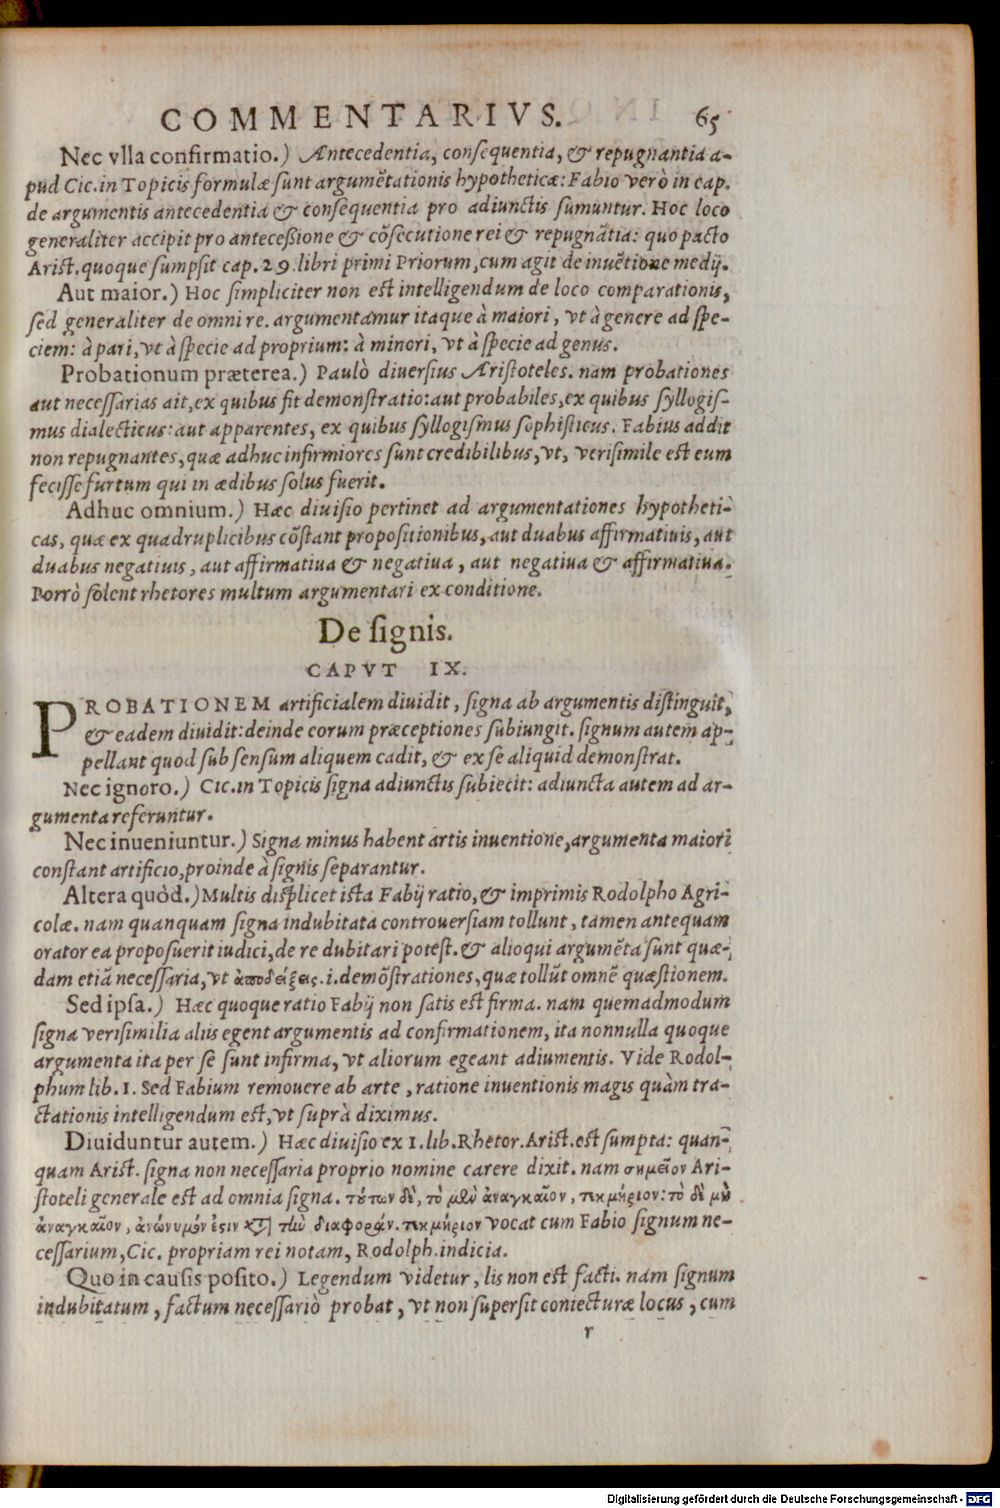 COMMENTARIVS. 65
Nec vlla confirmatio.) Antecedentia, consequentia, & repugnantia a-
pud Cic. in Topicis formulæ sunt argumētationis hypotheticæ: Fabio verò in cap.
de argumentis antecedentia & consequentia pro adiunctis sumuntur. Hoc loco
generaliter accipit pro antecessione & cōsecutione rei & repugnātia: quo pacto
Arist. quoque sumpsit cap. 29. libri primi Priorum, cum agit de inuētione medij.
Aut maior.) Hoc simpliciter non est intelligendum de loco comparationis,
sed generaliter de omni re. argumentamur itaque à maiori, vt à genere ad spe-
ciem: à pari, vt à specie ad proprium: à minori, vt à specie ad genus.
Probationum præterea.) Paulò diuersius Aristoteles. nam probationes
aut necessarias ait, ex quibus fit demonstratio: aut probabiles, ex quibus syllogis-
mus dialecticus: aut apparentes, ex quibus syllogismus sophisticus. Fabius addit
non repugnantes, quæ adhuc infirmiores sunt credibilibus, vt, verisimile est eum
fecisse furtum qui in ædibus solus fuerit.
Adhuc omnium.) Hæc diuisio pertinet ad argumentationes hypotheti-
cas, quæ ex quadruplicibus cōstant propositionibus, aut duabus affirmatiuis, aut
duabus negatiuis, aut affirmatiua & negatiua, aut negatiua & affirmatiua.
Porrò solent rhetores multum argumentari ex conditione.
De signis.
CAPVT IX.
PROBATIONEM artificialem diuidit, signa ab argumentis distinguit,
& eadem diuidit: deinde eorum præceptiones subiungit. signum autem ap-
pellant quod sub sensum aliquem cadit, & ex se aliquid demonstrat.
Nec ignoro.) Cic. in Topicis signa adiunctis subiecit: adiuncta autem ad ar-
gumenta referuntur.
Nec inueniuntur.) Signa minus habent artis inuentione, argumenta maiori
constant artificio, proinde à signis separantur.
Altera quòd.) Multis displicet ista Fabij ratio, & imprimis Rodolpho Agri-
colæ. nam quanquam signa indubitata controuersiam tollunt, tamen antequam
orator ea proposuerit iudici, de re dubitari potest. & alioqui argumēta sunt quæ-
dam etiā necessaria, vt ἀποδείξεις. i. demōstrationes, quæ tollūt omnē quæstionem.
Sed ipsa.) Hæc quoque ratio Fabij non satis est firma. nam quemadmodum
signa verisimilia aliis egent argumentis ad confirmationem, ita nonnulla quoque
argumenta ita per se sunt infirma, vt aliorum egeant adiumentis. Vide Rodol-
phum lib. 1. Sed Fabium remouere ab arte, ratione inuentionis magis quàm tra-
ctationis intelligendum est, vt suprà diximus.
Diuiduntur autem.) Hæc diuisio ex 1. lib. Rhetor. Arist. est sumpta: quan-
quam Arist. signa non necessaria proprio nomine carere dixit. nam σημεῖον Ari-
stoteli generale est ad omnia signa. τούτων δὲ, τὸ μὲν ἀναγκαῖον, τεκμήριον: τὸ δὲ μὴ
ἀναγκαῖον, ἀνώνυμόν ἐστιν κατὰ τὴν διαφοράν. τεκμήριον vocat cum Fabio signum ne-
cessarium, Cic. propriam rei notam, Rodolph. indicia.
Quo in causis posito.) Legendum videtur, lis non est facti. nam signum
indubitatum, factum necessariò probat, vt non supersit coniecturæ locus, cum
r
Digitalisierung gefördert durch die Deutsche Forschungsgemeinschaft - DFG